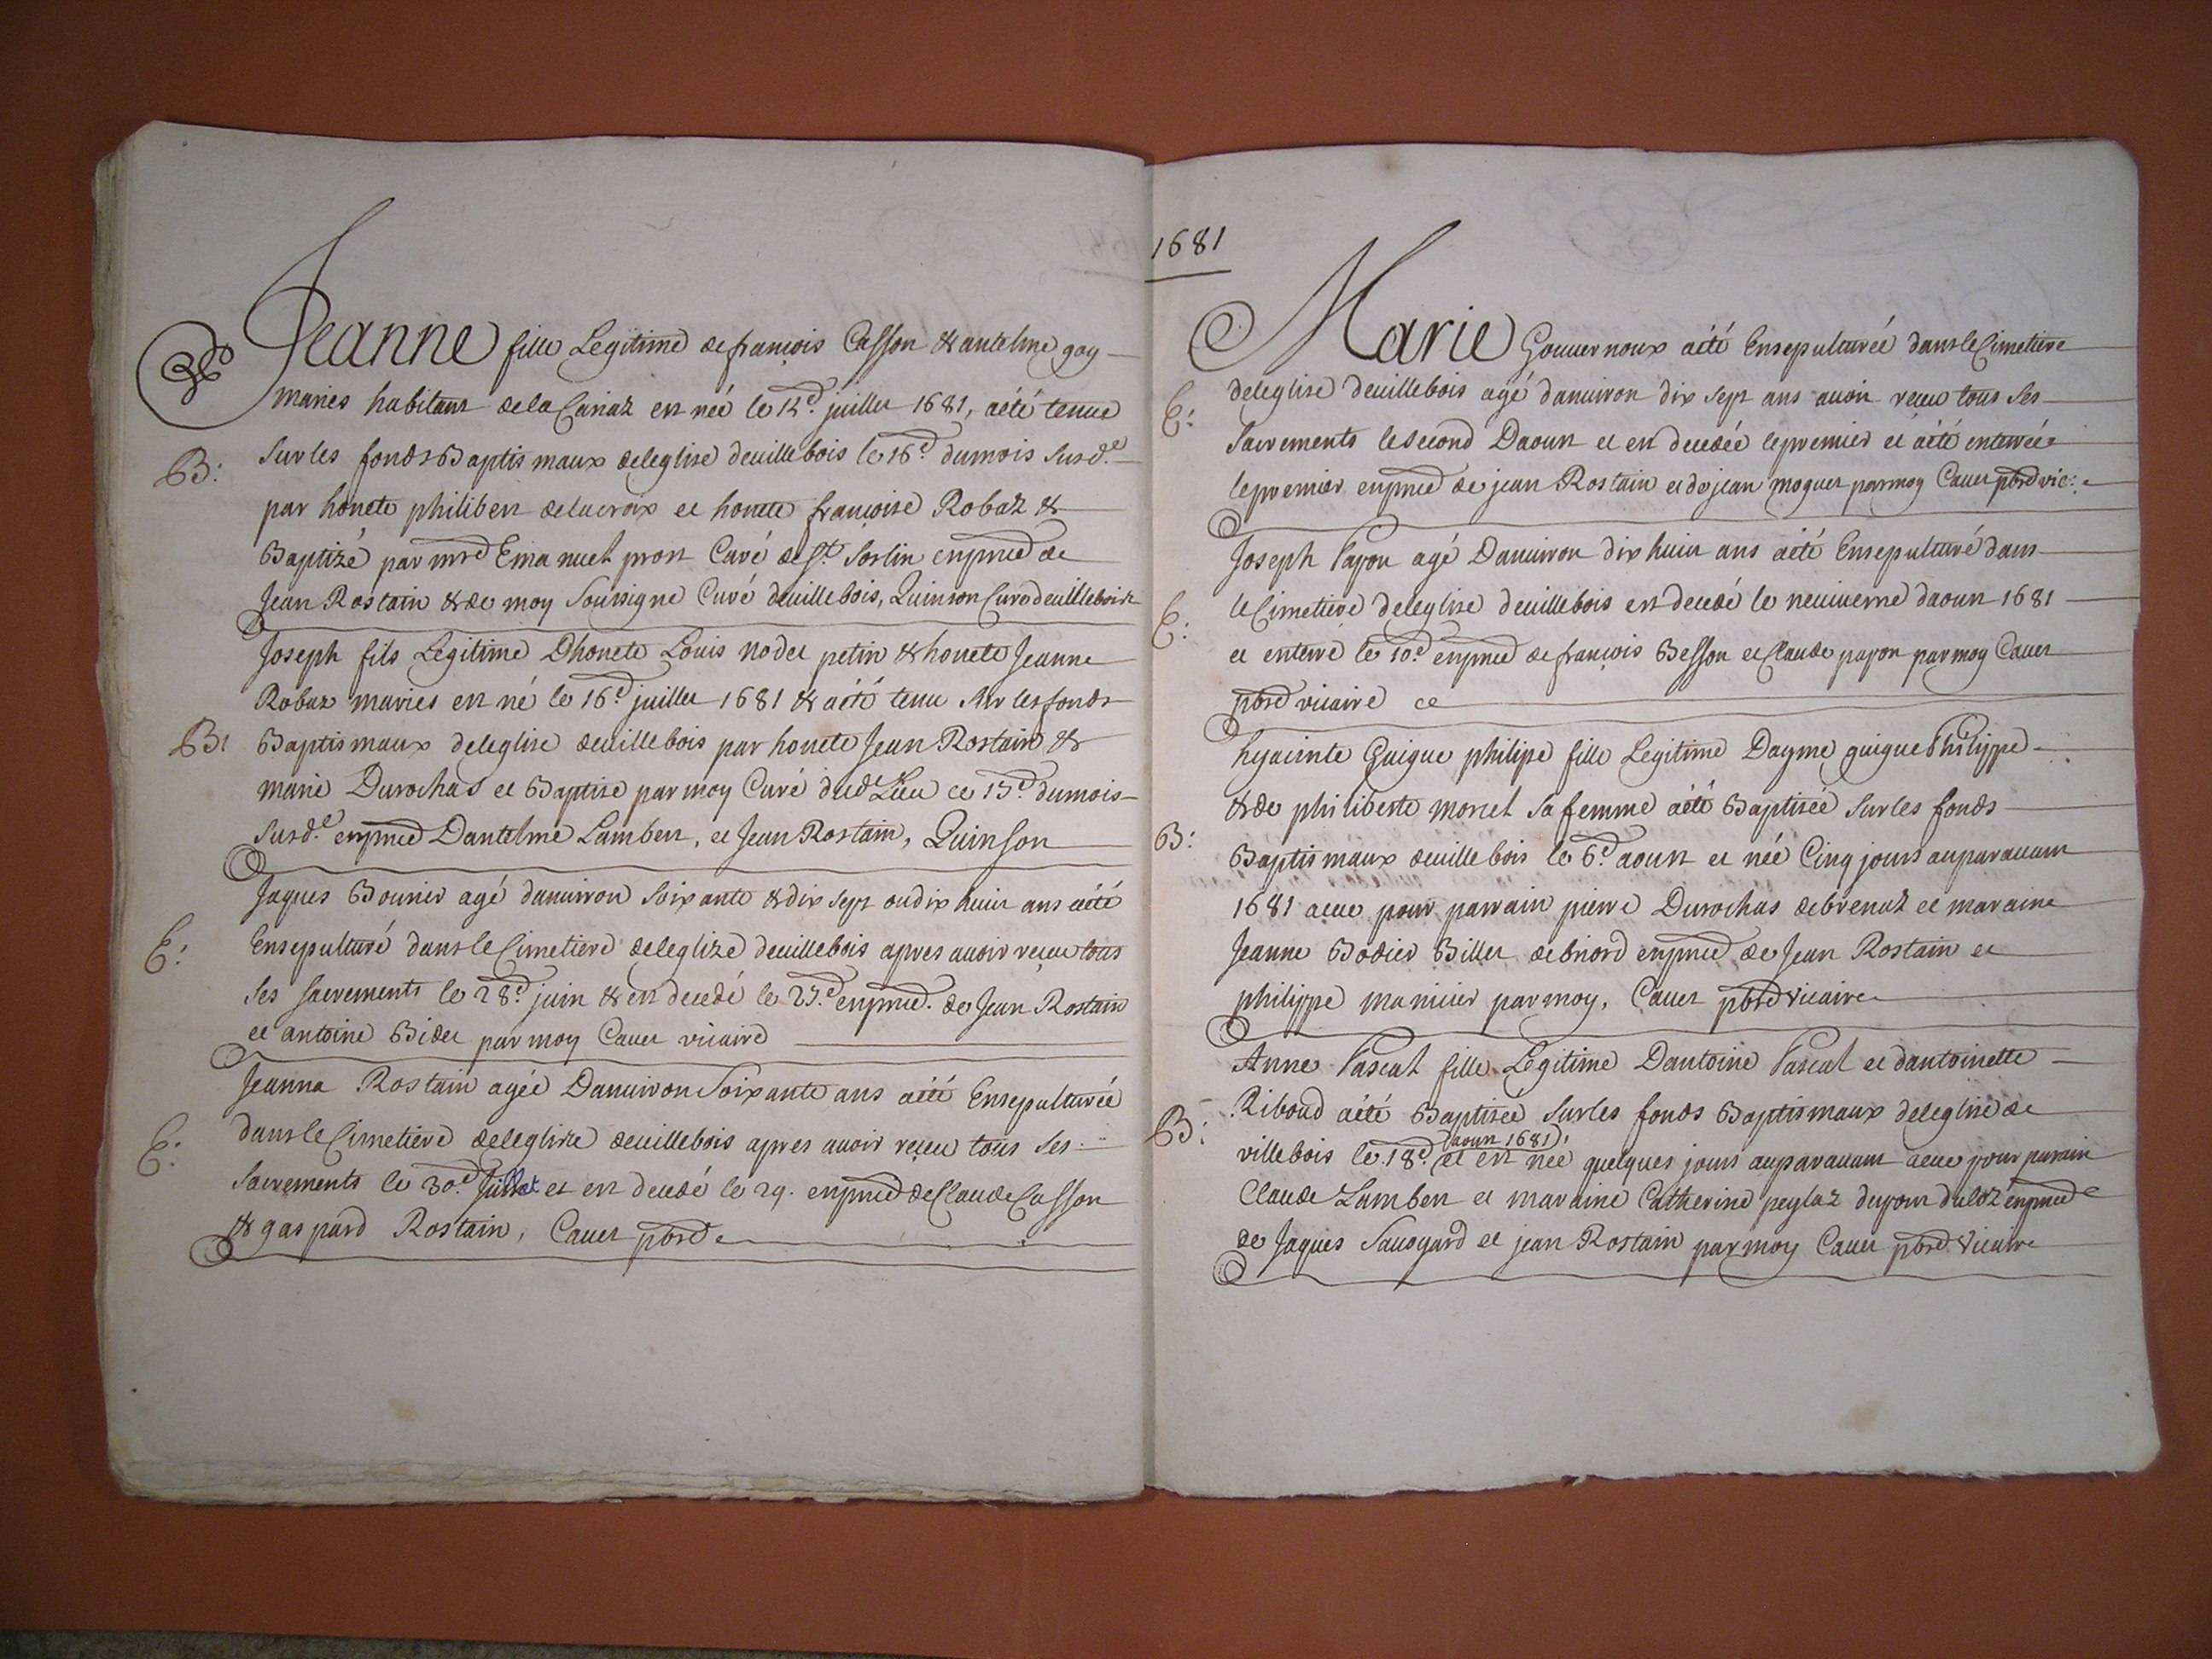 Jeanne fille Legitime de françois Casson & antelme goy
maries habitans de la Cariaz est née le 12e. juillet 1681, aété tenue
Sur les fonds Baptis maux deleglise deuillebois le 16e. dumois Susd.e
B:
par honete philibert delacroix et honete françoise Robaz &
Baptizé par mre Emanuel prost Curé de St. Sorlin enpnce de
Jean Rostain & de moy Soussigne Curé deuillebois, Quinson Curé deuillebois
Joseph fils Legitime Dhonete Louis nodet petin & honete Jeanne
Robaz maries est né le 16e juillet 1681 & aété tenu Sur les fonds
B: Baptismaux deleglise deuillebois par honete Jean Rostain &
marie Durochas et Baptise par moy Curé dud Lieu ce dumois
Susd.e enpnce Dantelme Lambert, et Jean Rostain, Quinson
Jaques Bourier agé danuiron Soixante & dix Sept oudix huit ans aété
E: Ensepulturé dans le Cimetiere deleglize deuillebois apres auoir reçeu tous
Ses Sacrements le 28e. juin & est decedé le enpnce. de Jean Rostain
et antoine Bidet par moy Cauet vicaire
Jeanna Rostain agée Danuiron Soixante ans aété Ensepulturéé
E: dans le Cimetiere deleglize deuillebois apres auoir reçeu tous Ses
Sacrements le 30e. Juillet et est decedé le 29. enpnce de Claude Casson
& gaspard Rostain, Cauet pbre
1681
Marie Gouuernoux aété Ensepulturéé dans le Cimetiere
E: deleglise deuillebois agé danuiron dix Sept ans auoir reçeu tous Ses
Sacrements le Second Daoust et est decedée lepremier et aété enterrée
lepremier enpnce de jean Rostain et de jean moguet par moy Cauet pbre vic:
Joseph Payon agé Danuiron dix huit ans aété Ensepulturé dans
E: le Cimetiere deleglise deuillebois est decedé le neuuieme daoust 1681
et enterré le 10e enpnce de françois Besson et Claude payon par moy Cauet
pbre vicaire ce
hyacinte Guigue philipe fille Legitime Dayme guigue Philippe
& de philiberte moriel Sa femme aété Baptiseé Sur les fonds
B: Baptismaux deuillebois le 6e aoust et née Cinq jours auparauant
1681 aeue pour parrain pierre Durochas debrenaz et maraine
Jeanne Bodier Billet debriord enpnce de Jean Rostain et
philippe manuier par moy, Cauet pbre vicaire
Anne Pascal fille Legitime Dantoine Pascal et dantoinette
B: Riboud aété Baptisée Sur les fonds Baptismaux deleglise de
aoust 1681
villebois le 18e. et est née quelques jours auparauant aeue pour parain
Claude Lambert et maraine Catherine peylaz dupont duloz enpnce
de Jaques Sauoyard et jean Rostain par moy Cauet pbre Vicaire